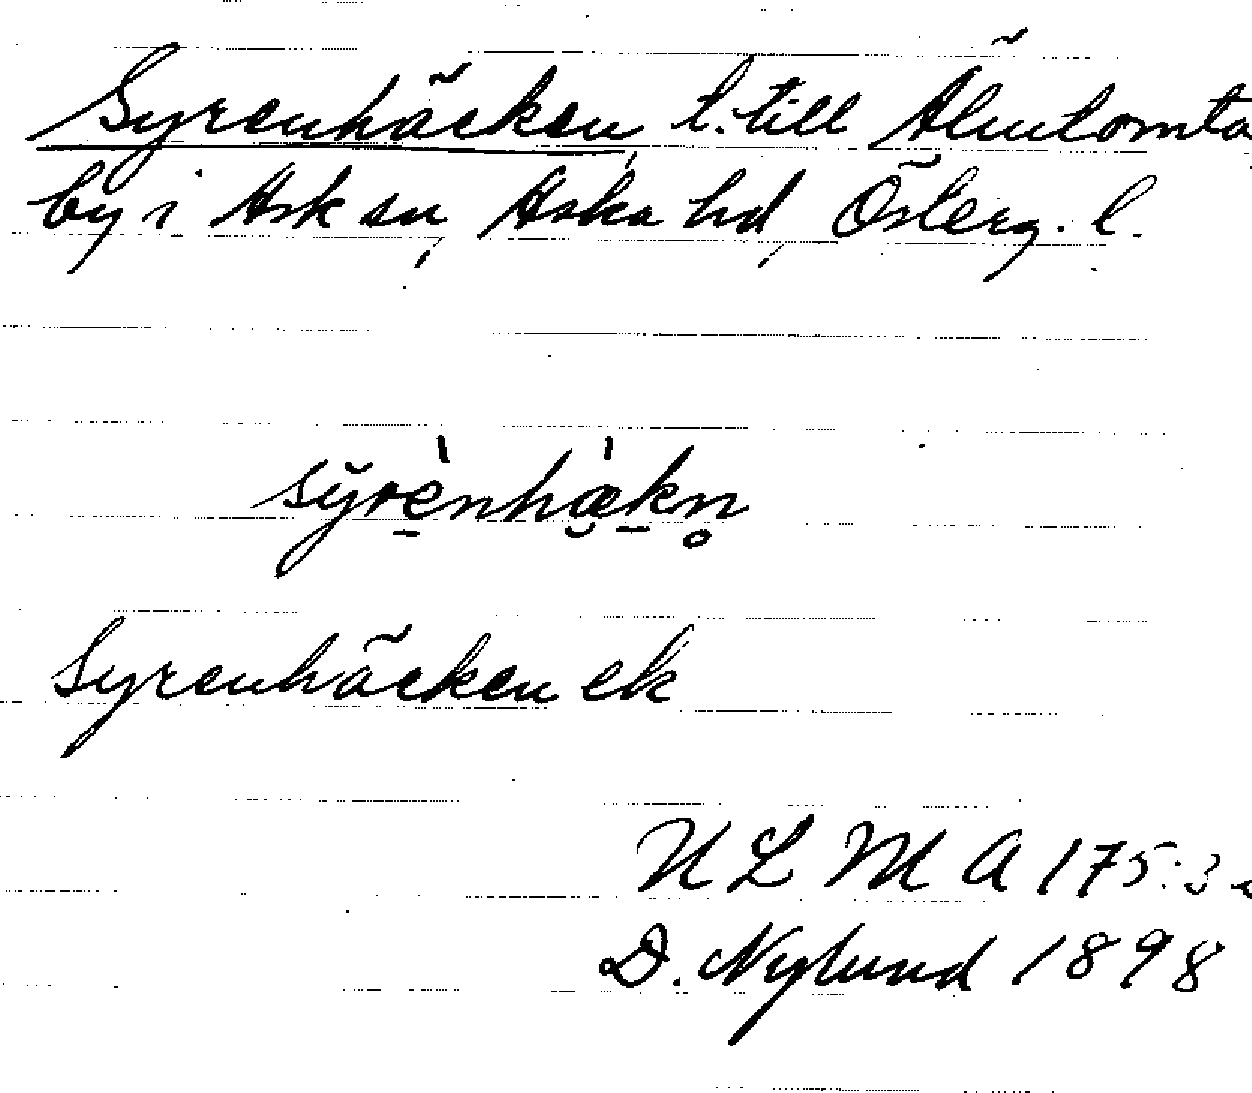 Syrenhäcken l. till Älmtomta
by i Ask sn, Aska hd, Österg. l.
sy̆rènhækn̥
Syrenhäcken ek
ULMA 175:3
D. Nylund 1898